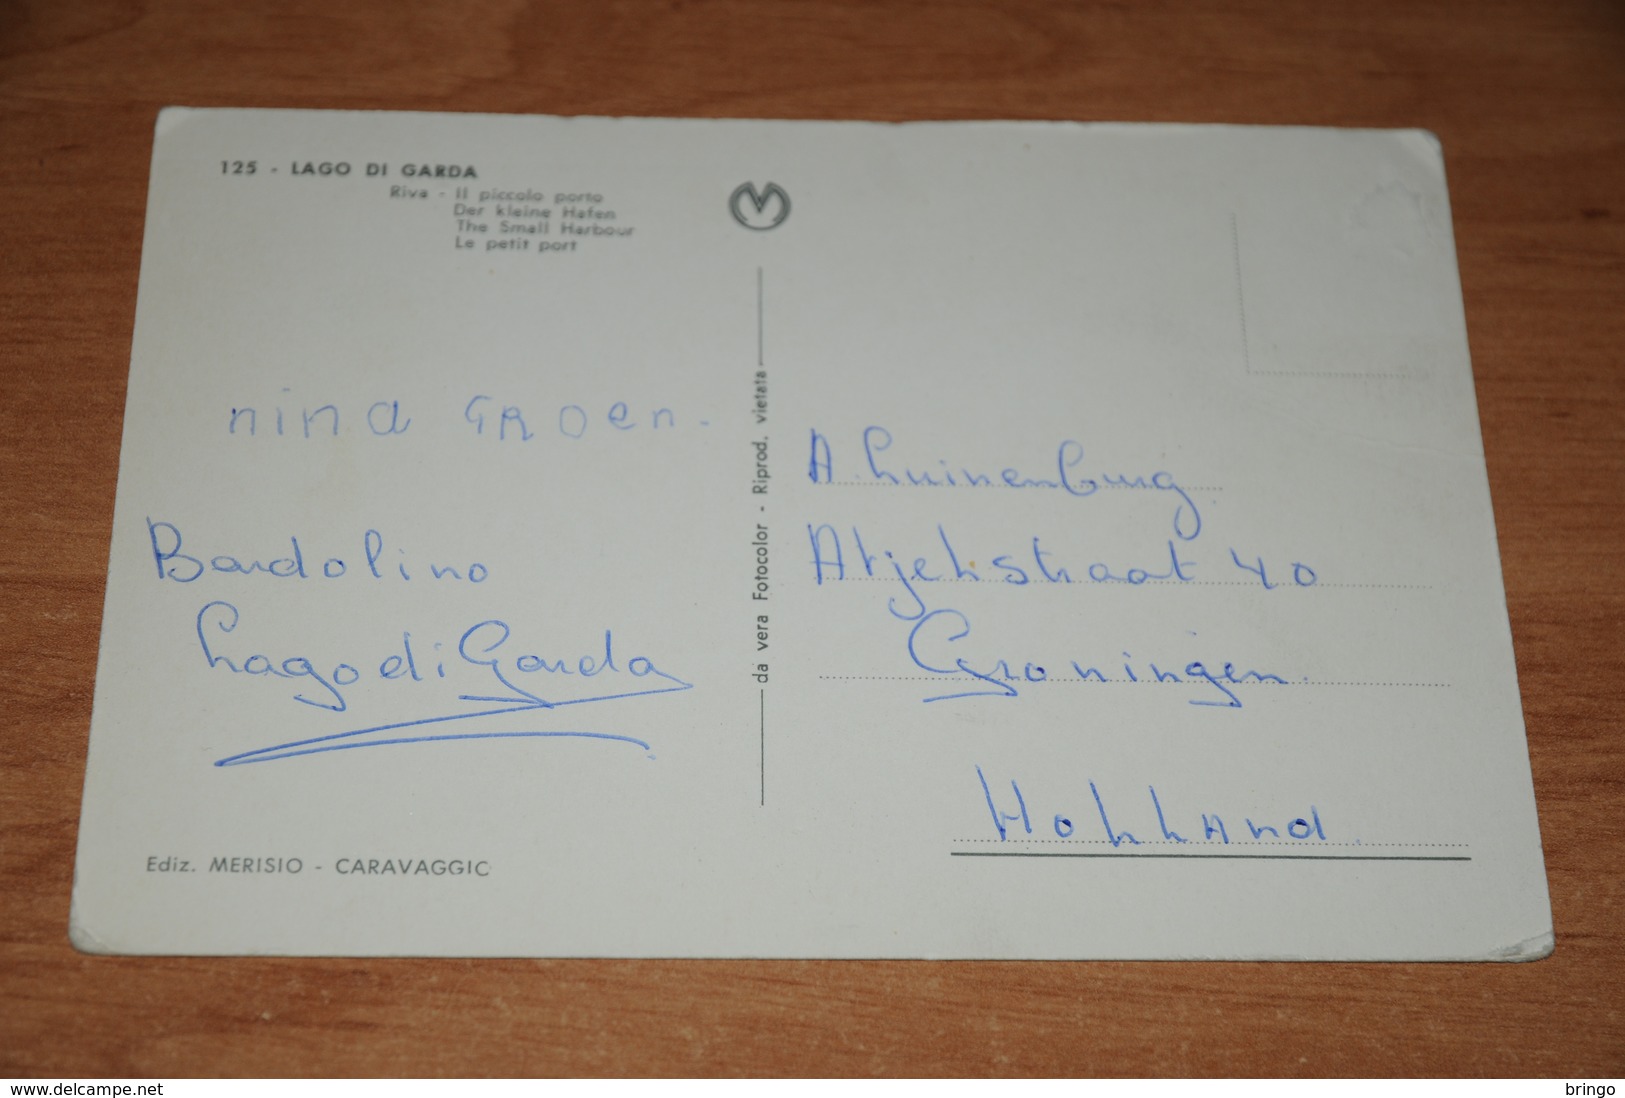 125 - LAGO DI GARDA
Riva - Il piccolo porto
Der kleine Hafen
The Small Harbour
Le petit port
nina GROEN.
Bardolino
Lago di Garda
Ediz. MERISIO - CARAVAGGIO
da vera Fotocolor - Riprod. vietata
A Luinenburg
Atjehstraat 40
Groningen.
HOLLAnd.
delcampe.net
bringo